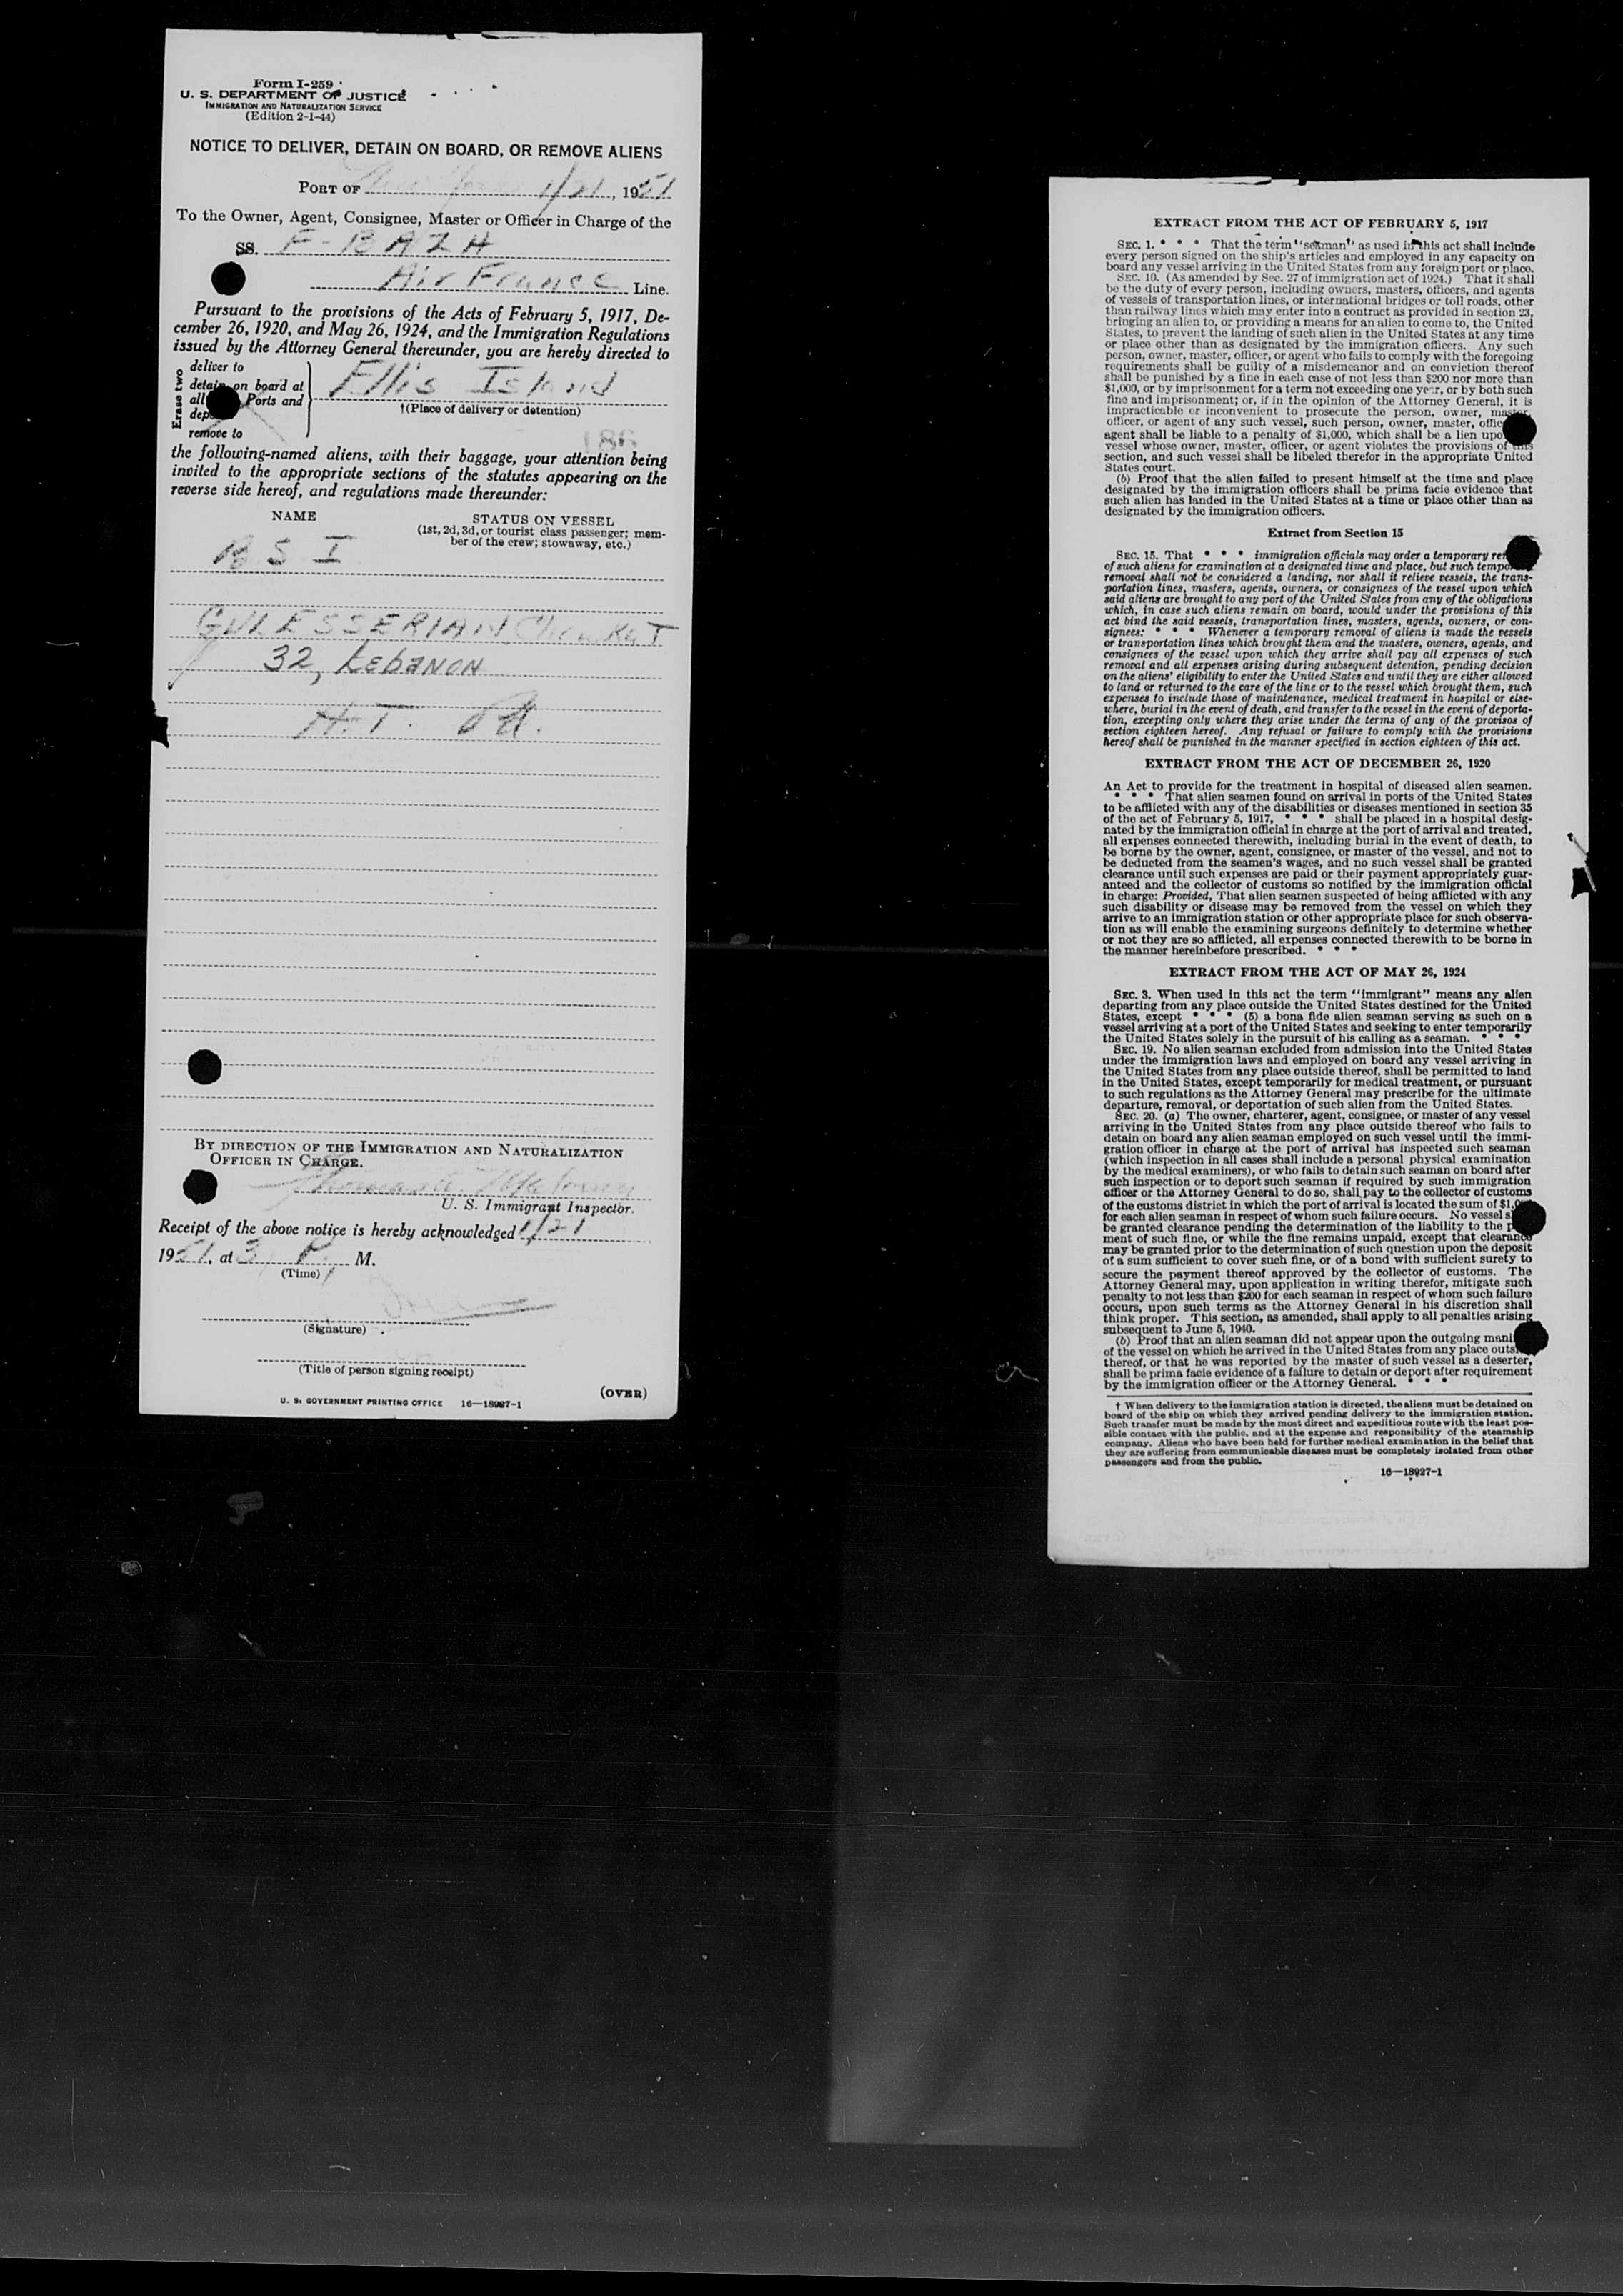 Form I-259
U. S. DEPARTMENT OF JUSTICE
IMMIGRATION AND NATURALIZATION SERVICE
(Edition 2-1-44)
NOTICE TO DELIVER, DETAIN ON BOARD, OR REMOVE ALIENS
PORT OF New York 1/21, 1951
To the Owner, Agent, Consignee, Master or Officer in Charge of the
SS. F-BAZH
Air France Line.
Pursuant to the provisions of the Acts of February 5, 1917, De-
cember 26, 1920, and May 26, 1924, and the Immigration Regulations
issued by the Attorney General thereunder, you are hereby directed to
Erase two
deliver to
detain on board at
all Ports and
dep
remove to
Ellis Island
†(Place of delivery or detention)
186
the following-named aliens, with their baggage, your attention being
invited to the appropriate sections of the statutes appearing on the
reverse side hereof, and regulations made thereunder:
NAME
STATUS ON VESSEL
(1st, 2d, 3d, or tourist class passenger; mem-
ber of the crew; stowaway, etc.)
BSI
GULESSERIAN
32, LEBANON
H.T. Pd.
BY DIRECTION OF THE IMMIGRATION AND NATURALIZATION
OFFICER IN CHARGE.
Thomas
U. S. Immigrant Inspector.
Receipt of the above notice is hereby acknowledged 1/21
1951, at 3 P. M.
(Time)
(Signature)
(Title of person signing receipt)
(OVER)
U. S. GOVERNMENT PRINTING OFFICE 16—18927-1
EXTRACT FROM THE ACT OF FEBRUARY 5, 1917
SEC. 1. * * * That the term "seaman" as used in this act shall include
every person signed on the ship's articles and employed in any capacity on
board any vessel arriving in the United States from any foreign port or place.
SEC. 10. (As amended by Sec. 27 of immigration act of 1924.) That it shall
be the duty of every person, including owners, masters, officers, and agents
of vessels of transportation lines, or international bridges or toll roads, other
than railway lines which may enter into a contract as provided in section 23,
bringing an alien to, or providing a means for an alien to come to, the United
States, to prevent the landing of such alien in the United States at any time
or place other than as designated by the immigration officers. Any such
person, owner, master, officer, or agent who fails to comply with the foregoing
requirements shall be guilty of a misdemeanor and on conviction thereof
shall be punished by a fine in each case of not less than $200 nor more than
$1,000, or by imprisonment for a term not exceeding one year, or by both such
fine and imprisonment; or, if in the opinion of the Attorney General, it is
impracticable or inconvenient to prosecute the person, owner, master,
officer, or agent of any such vessel, such person, owner, master, offic
agent shall be liable to a penalty of $1,000, which shall be a lien upo
vessel whose owner, master, officer, or agent violates the provisions of this
section, and such vessel shall be libeled therefor in the appropriate United
States court.
(b) Proof that the alien failed to present himself at the time and place
designated by the immigration officers shall be prima facie evidence that
such alien has landed in the United States at a time or place other than as
designated by the immigration officers.
Extract from Section 15
SEC. 15. That * * * immigration officials may order a temporary re
of such aliens for examination at a designated time and place, but such tempo
removal shall not be considered a landing, nor shall it relieve vessels, the trans-
portation lines, masters, agents, owners, or consignees of the vessel upon which
said aliens are brought to any port of the United States from any of the obligations
which, in case such aliens remain on board, would under the provisions of this
act bind the said vessels, transportation lines, masters, agents, owners, or con-
signees: * * * Whenever a temporary removal of aliens is made the vessels
or transportation lines which brought them and the masters, owners, agents, and
consignees of the vessel upon which they arrive shall pay all expenses of such
removal and all expenses arising during subsequent detention, pending decision
on the aliens' eligibility to enter the United States and until they are either allowed
to land or returned to the care of the line or to the vessel which brought them, such
expenses to include those of maintenance, medical treatment in hospital or else-
where, burial in the event of death, and transfer to the vessel in the event of deporta-
tion, excepting only where they arise under the terms of any of the provisos of
section eighteen hereof. Any refusal or failure to comply with the provisions
hereof shall be punished in the manner specified in section eighteen of this act.
EXTRACT FROM THE ACT OF DECEMBER 26, 1920
An Act to provide for the treatment in hospital of diseased alien seamen.
* * * That alien seamen found on arrival in ports of the United States
to be afflicted with any of the disabilities or diseases mentioned in section 35
of the act of February 5, 1917, * * * shall be placed in a hospital desig-
nated by the immigration official in charge at the port of arrival and treated,
all expenses connected therewith, including burial in the event of death, to
be borne by the owner, agent, consignee, or master of the vessel, and not to
be deducted from the seamen's wages, and no such vessel shall be granted
clearance until such expenses are paid or their payment appropriately guar-
anteed and the collector of customs so notified by the immigration official
in charge: Provided, That alien seamen suspected of being afflicted with any
such disability or disease may be removed from the vessel on which they
arrive to an immigration station or other appropriate place for such observa-
tion as will enable the examining surgeons definitely to determine whether
or not they are so afflicted, all expenses connected therewith to be borne in
the manner hereinbefore prescribed. * * *
EXTRACT FROM THE ACT OF MAY 26, 1924
SEC. 3. When used in this act the term "immigrant" means any alien
departing from any place outside the United States destined for the United
States, except * * * (5) a bona fide alien seaman serving as such on a
vessel arriving at a port of the United States and seeking to enter temporarily
the United States solely in the pursuit of his calling as a seaman. * * *
SEC. 19. No alien seaman excluded from admission into the United States
under the immigration laws and employed on board any vessel arriving in
the United States from any place outside thereof, shall be permitted to land
in the United States, except temporarily for medical treatment, or pursuant
to such regulations as the Attorney General may prescribe for the ultimate
departure, removal, or deportation of such alien from the United States.
SEC. 20. (a) The owner, charterer, agent, consignee, or master of any vessel
arriving in the United States from any place outside thereof who fails to
detain on board any alien seaman employed on such vessel until the immi-
gration officer in charge at the port of arrival has inspected such seaman
(which inspection in all cases shall include a personal physical examination
by the medical examiners), or who fails to detain such seaman on board after
such inspection or to deport such seaman if required by such immigration
officer or the Attorney General to do so, shall pay to the collector of customs
of the customs district in which the port of arrival is located the sum of $1,0
for each alien seaman in respect of whom such failure occurs. No vessel s
be granted clearance pending the determination of the liability to the p
ment of such fine, or while the fine remains unpaid, except that clearance
may be granted prior to the determination of such question upon the deposit
of a sum sufficient to cover such fine, or of a bond with sufficient surety to
secure the payment thereof approved by the collector of customs. The
Attorney General may, upon application in writing therefor, mitigate such
penalty to not less than $200 for each seaman in respect of whom such failure
occurs, upon such terms as the Attorney General in his discretion shall
think proper. This section, as amended, shall apply to all penalties arising
subsequent to June 5, 1940.
(b) Proof that an alien seaman did not appear upon the outgoing mani
of the vessel on which he arrived in the United States from any place outs
thereof, or that he was reported by the master of such vessel as a deserter,
shall be prima facie evidence of a failure to detain or deport after requirement
by the immigration officer or the Attorney General. * * *
† When delivery to the immigration station is directed, the aliens must be detained on
board of the ship on which they arrived pending delivery to the immigration station.
Such transfer must be made by the most direct and expeditious route with the least pos-
sible contact with the public, and at the expense and responsibility of the steamship
company. Aliens who have been held for further medical examination in the belief that
they are suffering from communicable diseases must be completely isolated from other
passengers and from the public.
16—18927-1